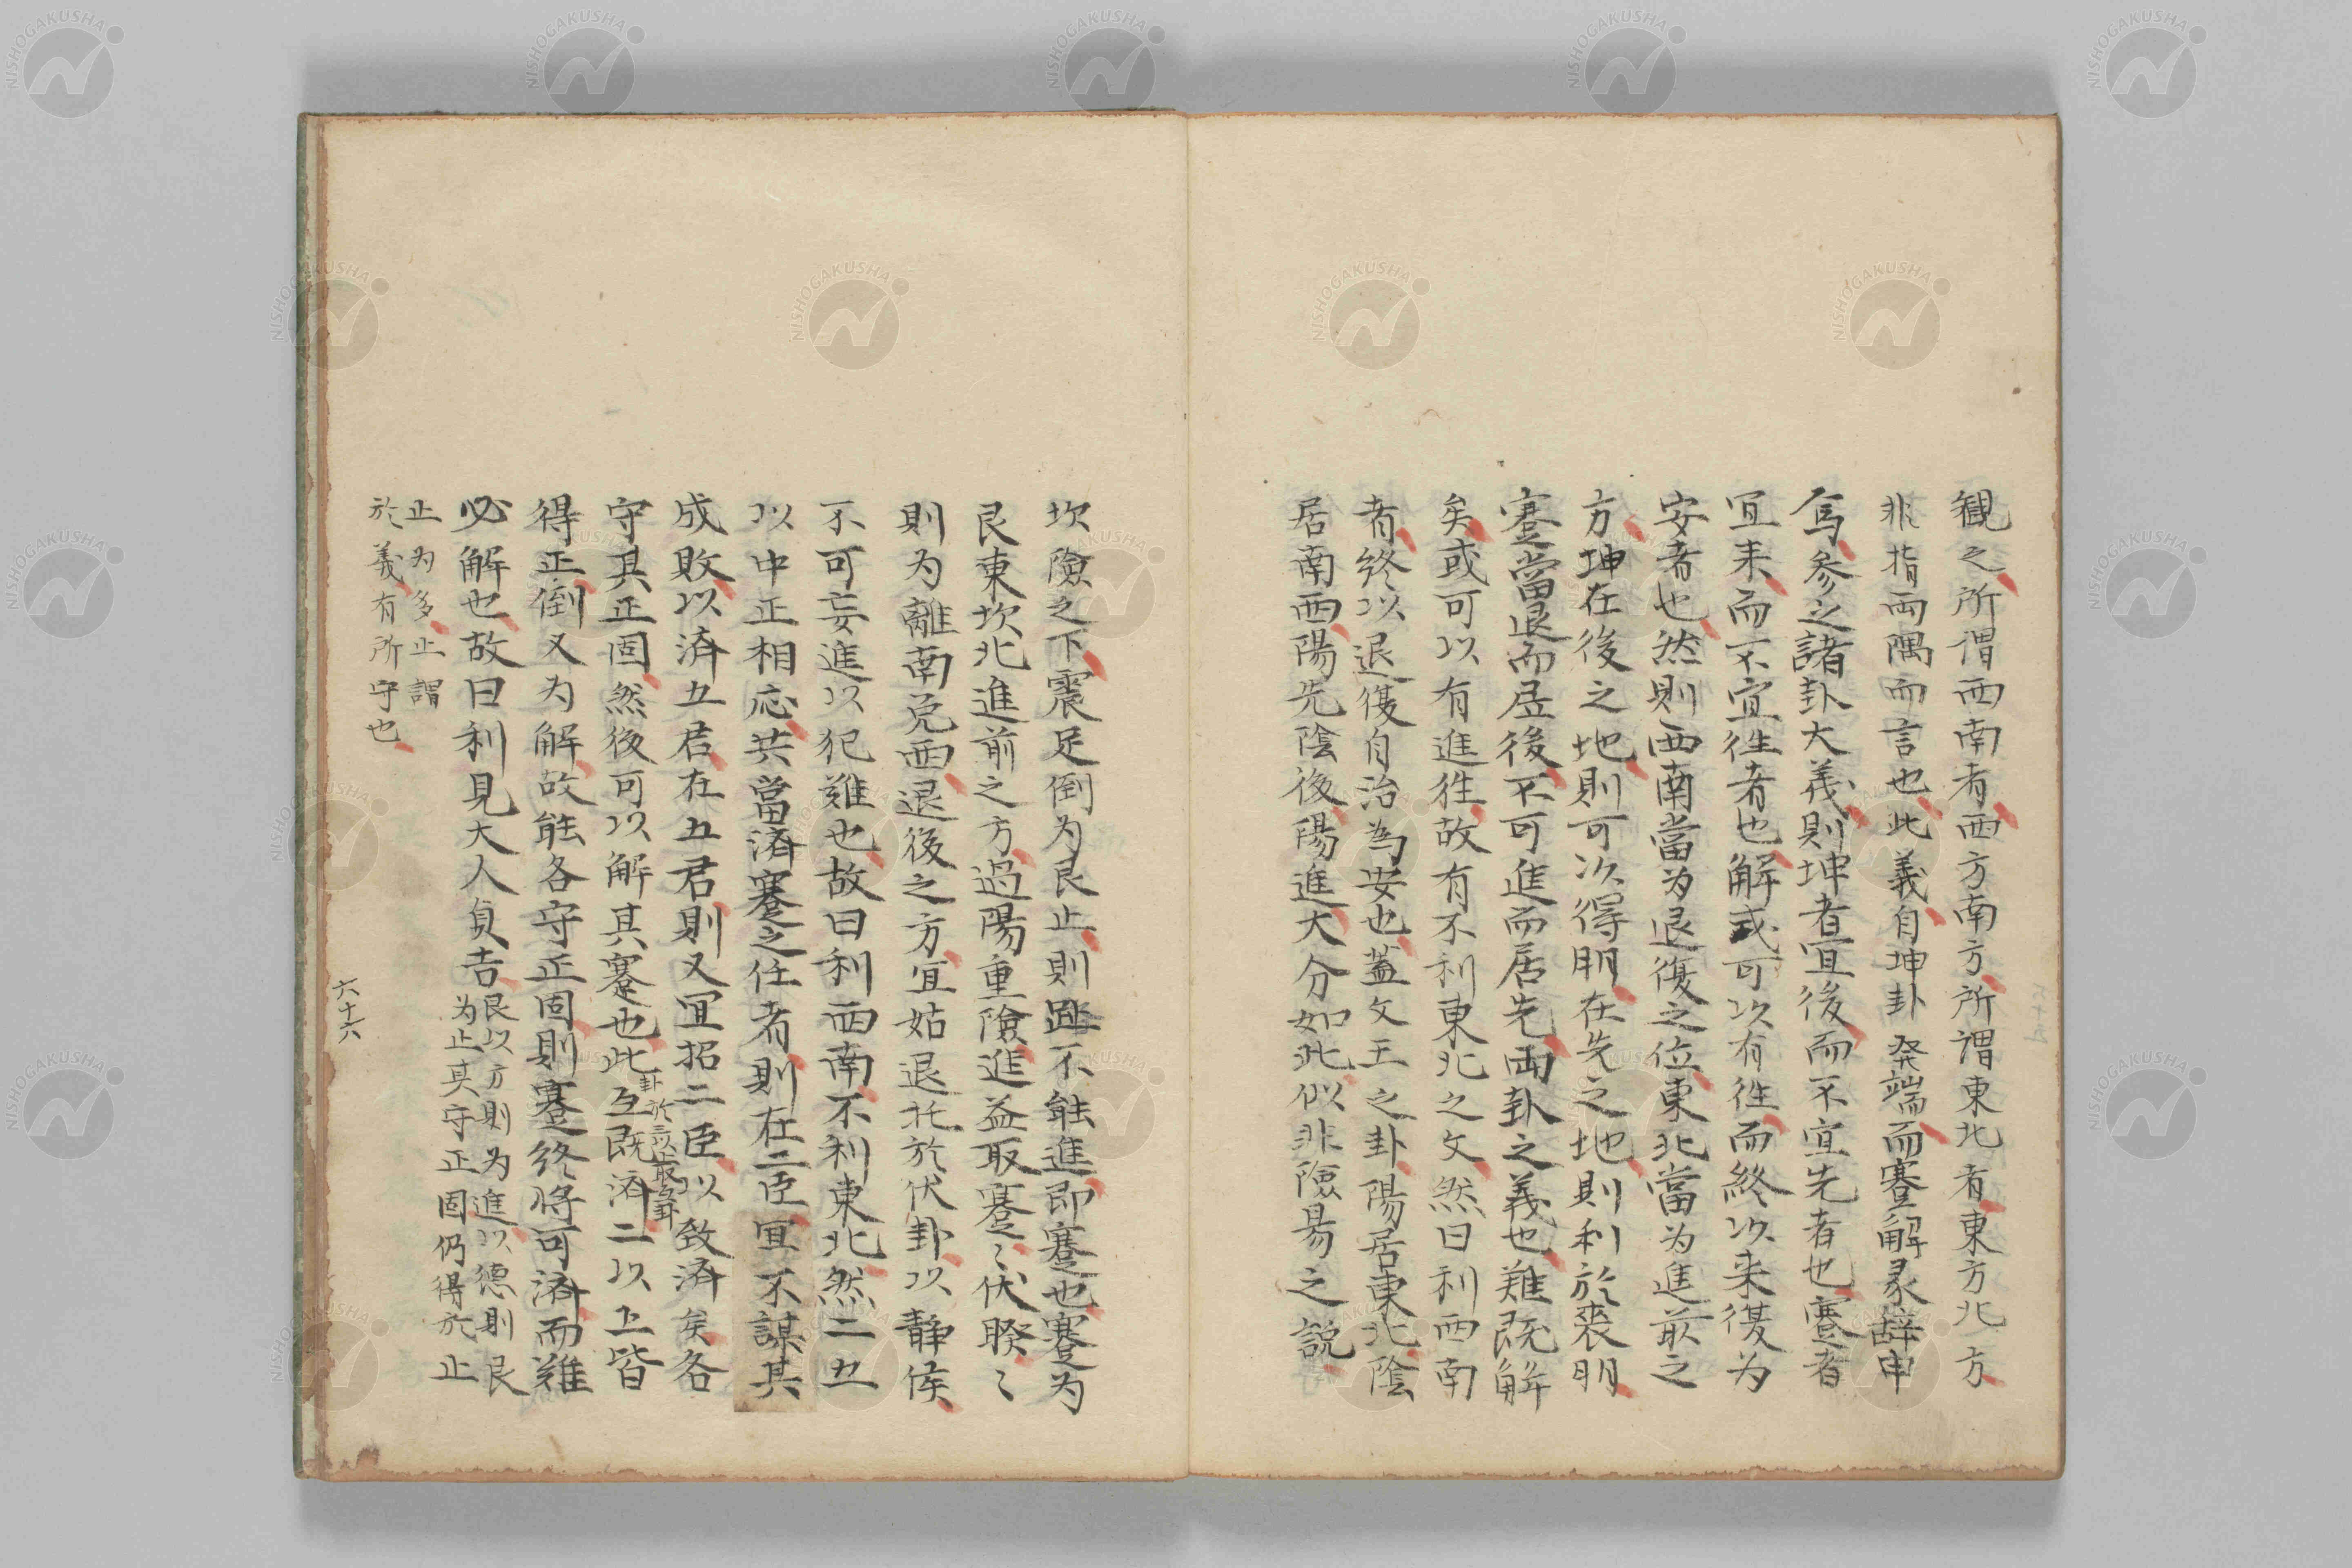 観之所謂西南者西方南方所謂東北者東方北方
非指両隅而言也此義自坤卦発端而蹇解彖辞申
焉参之諸卦大義則坤者宜後而不宜先者也蹇者
宜来而不宜徃者也解或可以有徃而終以来復为
安者也然則西南當为退復之位東北當为進前之
方坤在後之地則可以得朋在先之地則利於喪朋
蹇當退而居後不可進而居先両卦之義也難既解
矣或可以有進徃故有不利東北之文然曰利西南
者終以退復自治為安也蓋文王之卦陽居東北陰
居南西陽先陰後陽進大分如此似非険易之説
坎險之下震足倒为艮止則不能進即蹇也蹇为
艮東坎北進前之方過陽重險進益取蹇〻伏睽〻
則为離南兌西退後之方宜姑退托於伏卦以静俟
不可妄進以犯難也故曰利西南不利東北然二五
以中正相応共當済蹇之任者則在二臣宜不謀其
成敗以済五君在五君則又宜招二臣以致済矣各
守其正固然後可以解其蹇也此互既済二以上皆
卦於三以上取為卦
得正倒又为解故能各守正固則蹇終将可済而難
必解也故曰利見大人貞吉
艮以方則为進以德則艮
为止其守正固仍得於止
止为多止謂
於義有所守也
六十六
NISHOGAKUSHA